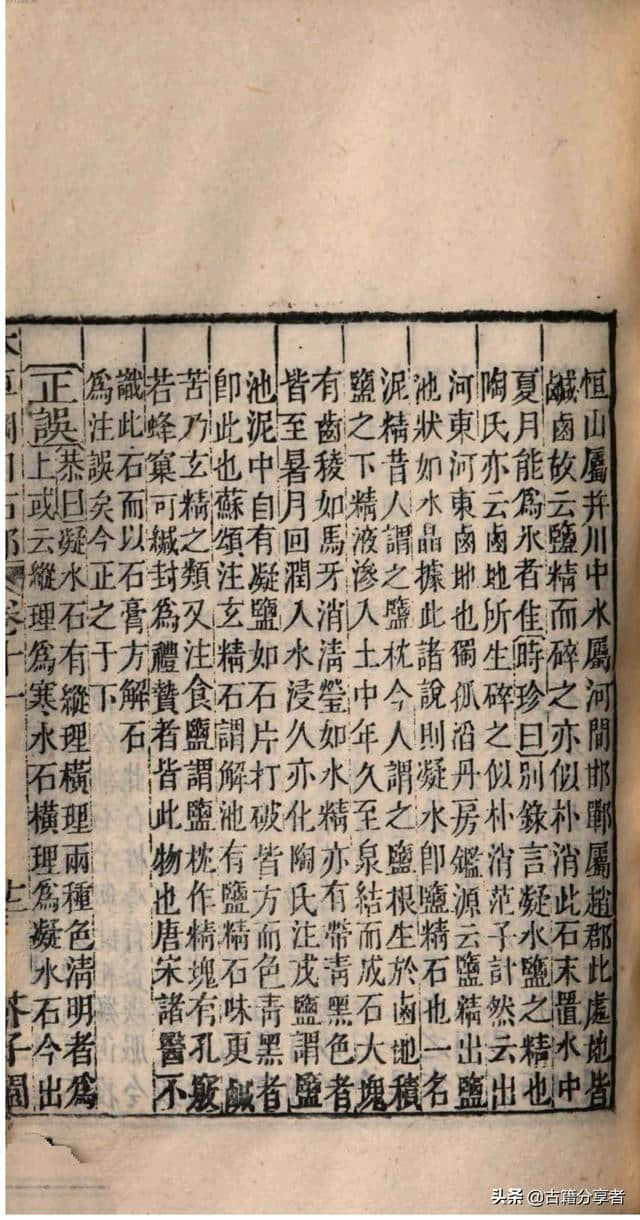 恒山屬幷川中水屬河間邯鄲屬趙郡此處地皆
鹹鹵故云鹽精而碎之亦似朴消此石末置水中
夏月能爲氷者佳時珍曰別錄言凝水鹽之精也
陶氏亦云鹵地所生碎之似朴消范子計然云出
河東河東鹵地也獨孤滔丹房鑑源云鹽精出鹽
池狀如水晶據此諸說則凝水卽鹽精石也一名
泥精昔人謂之鹽枕今人謂之鹽根生於鹵地積
鹽之下精液滲入土中年久至泉結而成石大塊
有齒稜如馬牙消淸瑩如水精亦有帶靑黑色者
皆至暑月回潤入水浸久亦化陶氏注戎鹽謂鹽
池泥中自有凝鹽如石片打破皆方而色靑黑者
卽此也蘇頌注玄精石謂解池有鹽精石味更鹹
苦乃玄精之類又注食鹽謂鹽枕作精塊有孔竅
若蜂窠可緘封爲禮贄者皆此物也唐宋諸醫不
識此石而以石膏方解石
爲注誤矣今正之于下
正誤
恭曰凝水石有縱理橫理兩種色淸明者爲
上或云縱理爲寒水石橫理爲凝水石今出
卷十一
十二
芥子園
頭条 @古籍分享者